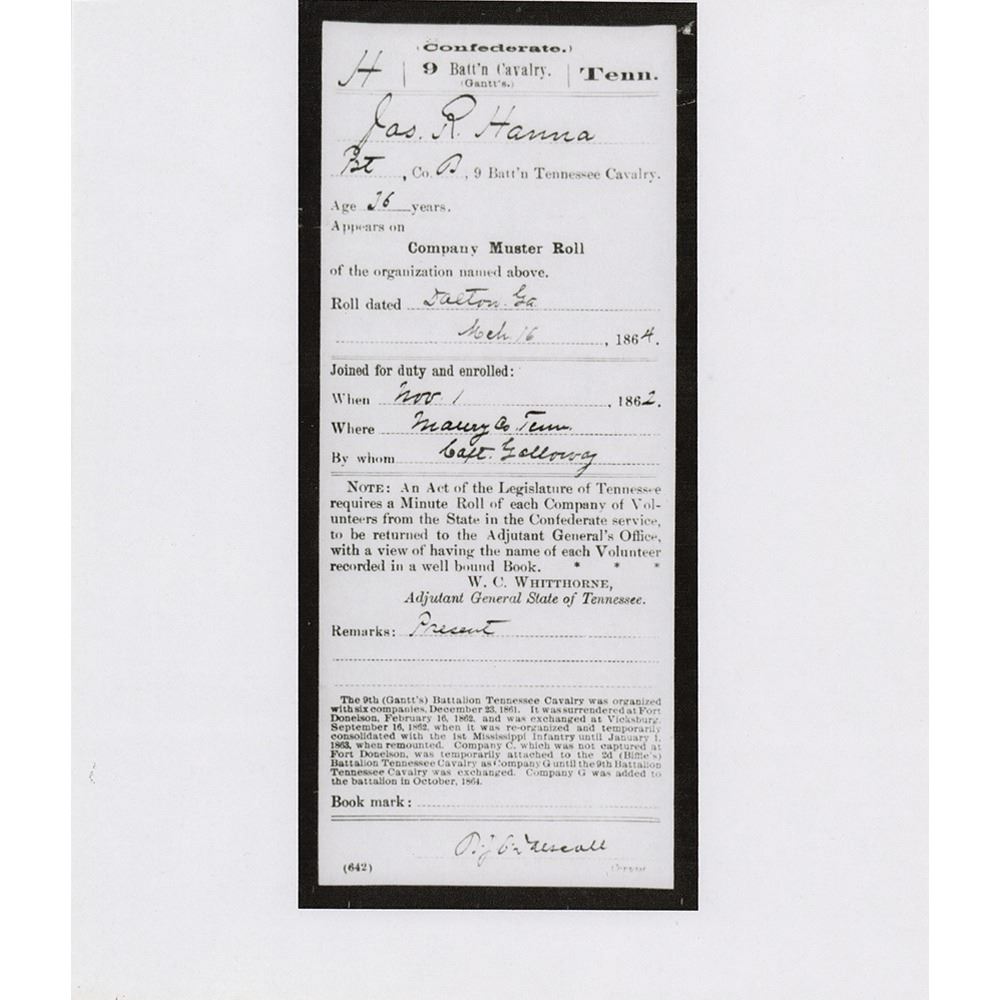 (Confederate.)
H | 9 Batt'n Cavalry. | Tenn.
(Gantt's.)
Jas. R. Hanna
Pvt, Co. B, 9 Batt'n Tennessee Cavalry.
Age 36 years.
Appears on
Company Muster Roll
of the organization named above.
Roll dated Dalton Ga
Mch 16, 1864.
Joined for duty and enrolled:
When Nov 1, 1862.
Where Maury Co. Tenn.
By whom Capt. Galloway
NOTE: An Act of the Legislature of Tennessee
requires a Minute Roll of each Company of Vol-
unteers from the State in the Confederate service,
to be returned to the Adjutant General's Office,
with a view of having the name of each Volunteer
recorded in a well bound Book. * * *
W. C. WHITTHORNE,
Adjutant General State of Tennessee.
Remarks: Present
The 9th (Gantt's) Battalion Tennessee Cavalry was organized
with six companies, December 23, 1861. It was surrendered at Fort
Donelson, February 16, 1862, and was exchanged at Vicksburg,
September 16, 1862, when it was re-organized and temporarily
consolidated with the 1st Mississippi Infantry until January 1,
1863, when remounted. Company C, which was not captured at
Fort Donelson, was temporarily attached to the 2d (Biffle's)
Battalion Tennessee Cavalry as Company G until the 9th Battalion
Tennessee Cavalry was exchanged. Company G was added to
the battalion in October, 1864.
Book mark:
(642)